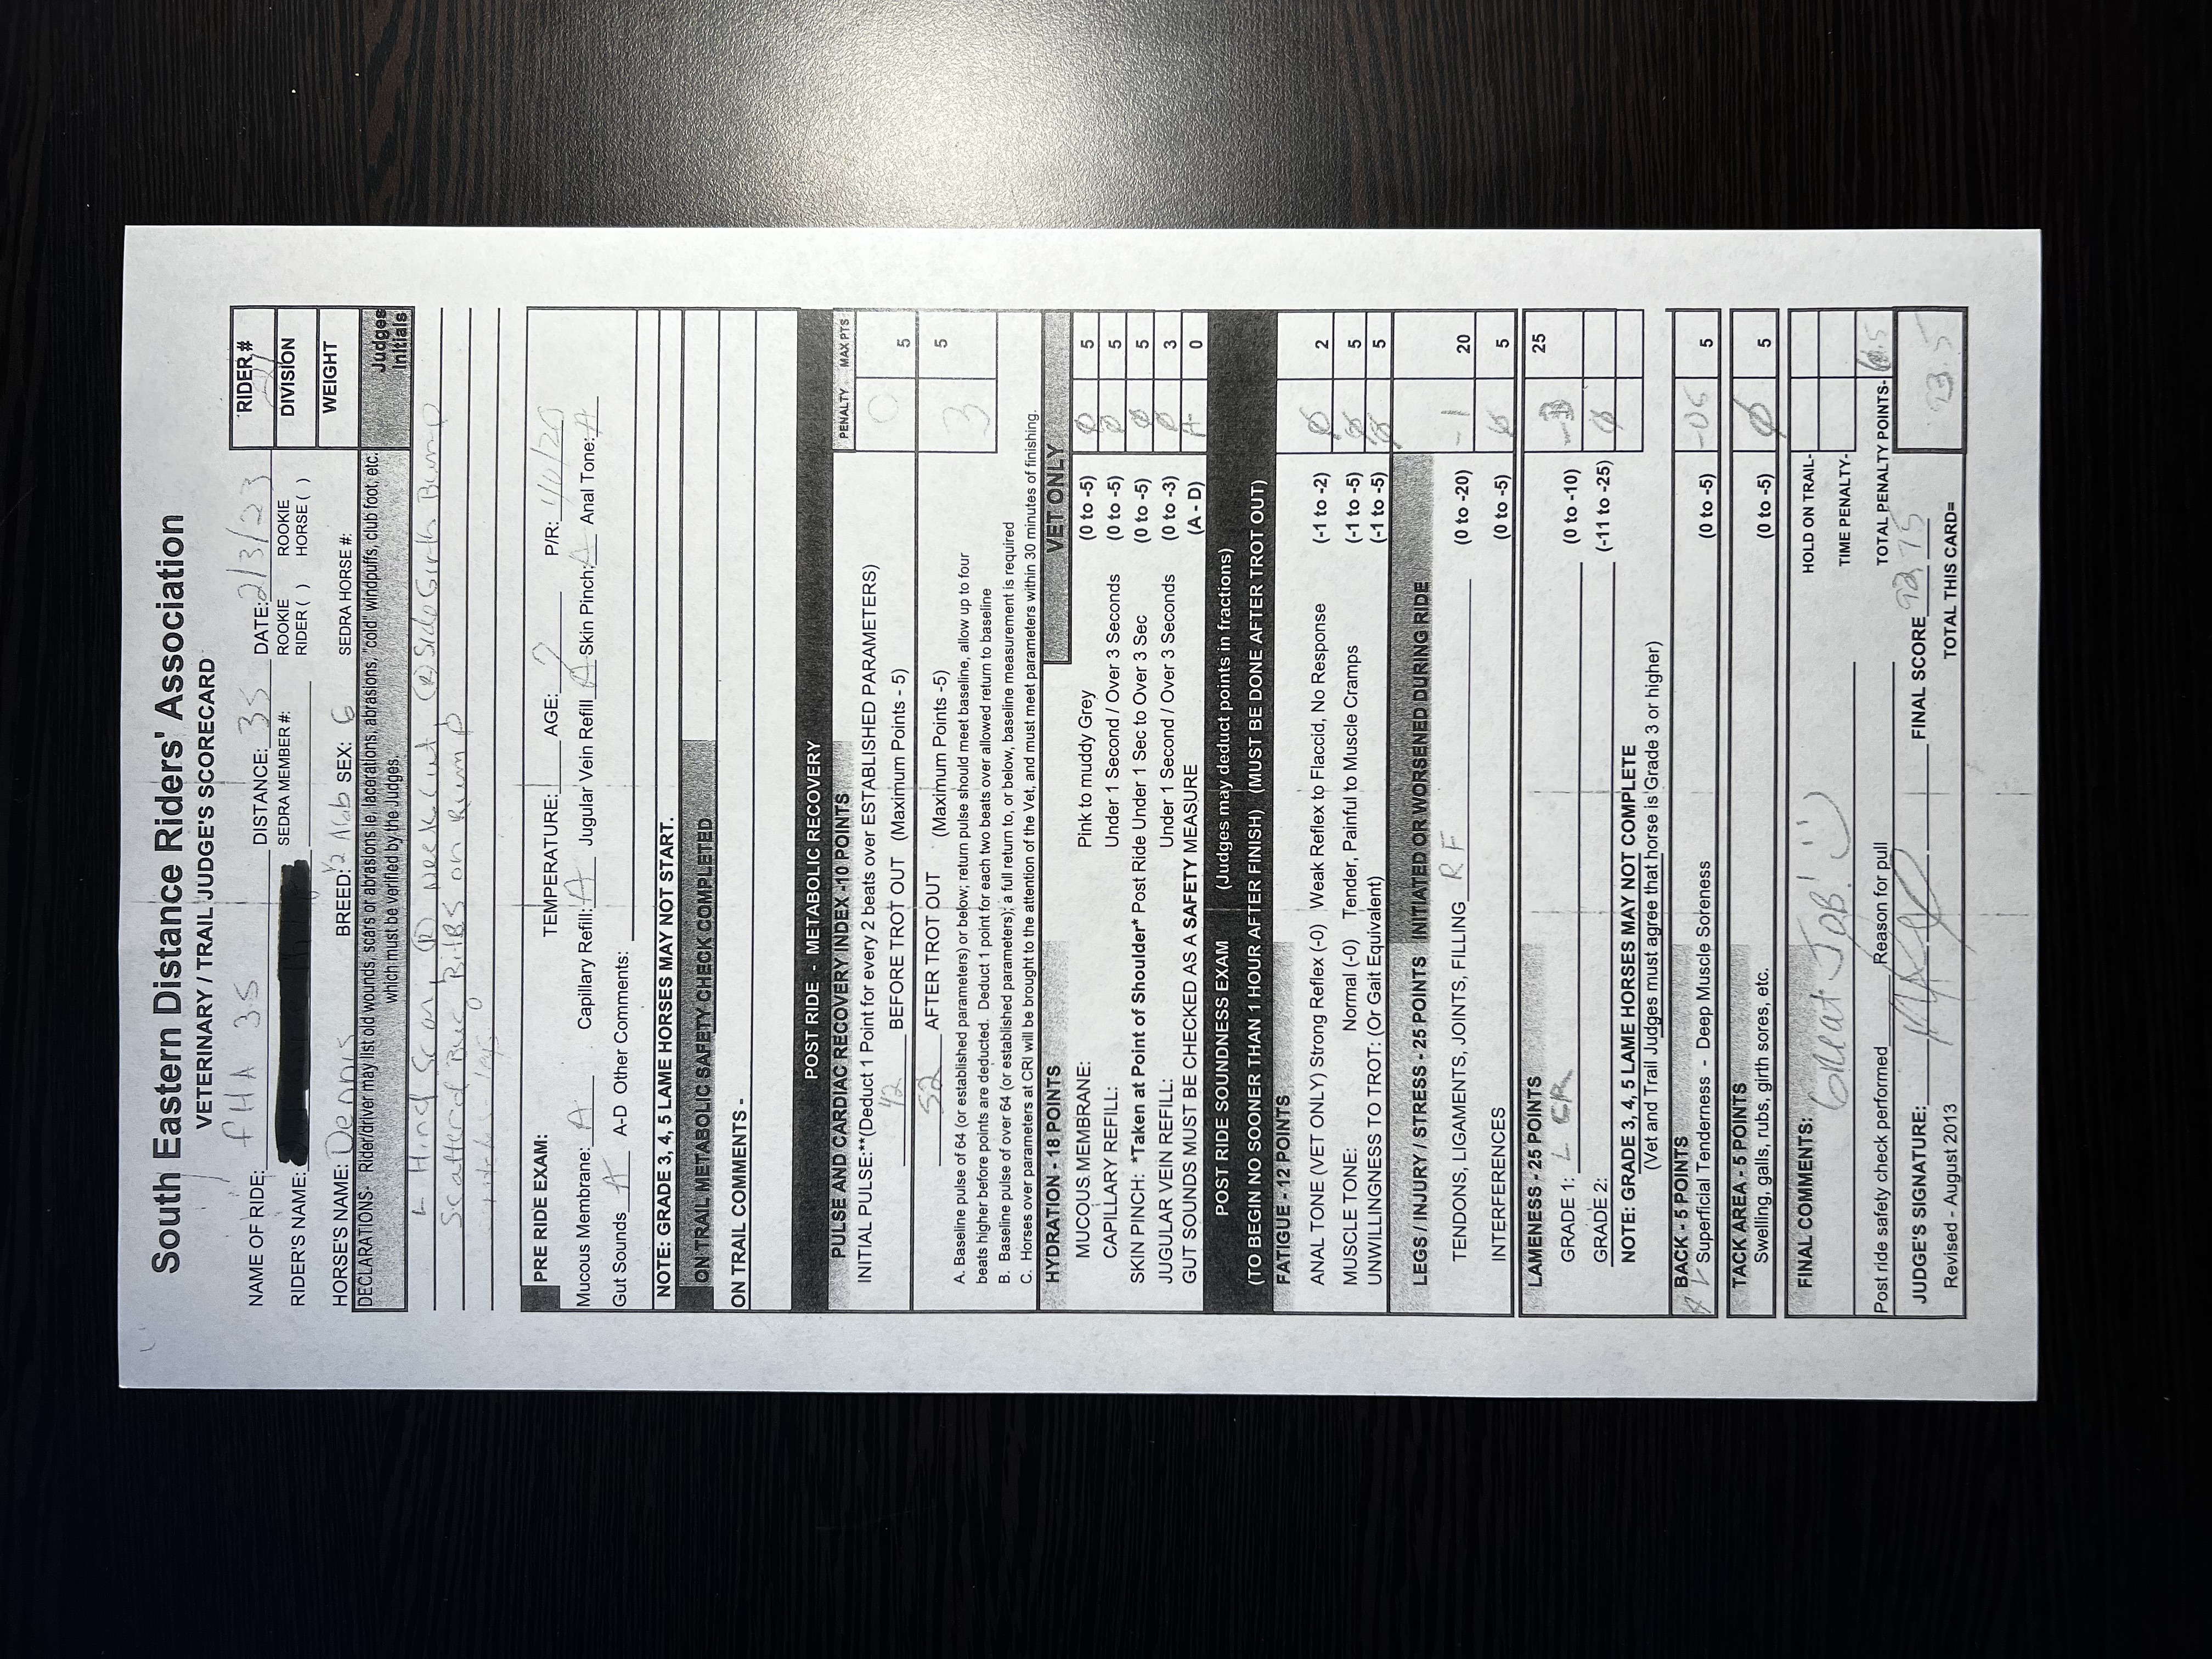 South Eastern Distance Riders' Association
VETERINARY / TRAIL JUDGE'S SCORECARD
NAME OF RIDE: FHA 35 DISTANCE: 35 DATE: 2/3/23 RIDER #
RIDER'S NAME: SEDRA MEMBER #: ROOKIE RIDER ( ) ROOKIE HORSE ( ) DIVISION
HORSE'S NAME: Dennis BREED: 1/2 Arab SEX: G SEDRA HORSE #: WEIGHT
DECLARATIONS- Rider/driver may list old wounds, scars or abrasions ie, lacerations, abrasions, "cold" windpuffs, club foot, etc. Judges
which must be verified by the Judges. Initials
L Hind Scar, (R) Neck Cut, (R) Side Girth Bump
Scatterd Bug BitBS on Rump
PRE RIDE EXAM: TEMPERATURE: AGE: 7 P/R: 40/20
Mucous Membrane: A Capillary Refill: A Jugular Vein Refill A Skin Pinch: A Anal Tone: A
Gut Sounds A A-D Other Comments:
NOTE: GRADE 3, 4, 5 LAME HORSES MAY NOT START.
ON TRAIL METABOLIC SAFETY CHECK COMPLETED
ON TRAIL COMMENTS -
POST RIDE - METABOLIC RECOVERY
PULSE AND CARDIAC RECOVERY INDEX -10 POINTS PENALTY MAX PTS
INITIAL PULSE:**(Deduct 1 Point for every 2 beats over ESTABLISHED PARAMETERS)
42 BEFORE TROT OUT (Maximum Points - 5) 0 5
52 AFTER TROT OUT (Maximum Points -5) 3 5
A. Baseline pulse of 64 (or established parameters) or below; return pulse should meet baseline, allow up to four
beats higher before points are deducted. Deduct 1 point for each two beats over allowed return to baseline
B. Baseline pulse of over 64 (or established parameters); a full return to, or below, baseline measurement is required
C. Horses over parameters at CRI will be brought to the attention of the Vet, and must meet parameters within 30 minutes of finishing.
HYDRATION - 18 POINTS VET ONLY
MUCOUS MEMBRANE: Pink to muddy Grey (0 to -5) Ø 5
CAPILLARY REFILL: Under 1 Second / Over 3 Seconds (0 to -5) Ø 5
SKIN PINCH: *Taken at Point of Shoulder* Post Ride Under 1 Sec to Over 3 Sec (0 to -5) Ø 5
JUGULAR VEIN REFILL: Under 1 Second / Over 3 Seconds (0 to -3) Ø 3
GUT SOUNDS MUST BE CHECKED AS A SAFETY MEASURE (A - D) A- 0
POST RIDE SOUNDNESS EXAM (Judges may deduct points in fractions)
(TO BEGIN NO SOONER THAN 1 HOUR AFTER FINISH) (MUST BE DONE AFTER TROT OUT)
FATIGUE - 12 POINTS
ANAL TONE (VET ONLY) Strong Reflex (-0) Weak Reflex to Flaccid, No Response (-1 to -2) Ø 2
MUSCLE TONE: Normal (-0) Tender, Painful to Muscle Cramps (-1 to -5) Ø 5
UNWILLINGNESS TO TROT: (Or Gait Equivalent) (-1 to -5) Ø 5
LEGS / INJURY / STRESS - 25 POINTS INITIATED OR WORSENED DURING RIDE
TENDONS, LIGAMENTS, JOINTS, FILLING RF (0 to -20) -1 20
INTERFERENCES (0 to -5) Ø 5
LAMENESS - 25 POINTS 25
GRADE 1: L CR (0 to -10)
GRADE 2: (-11 to -25) Ø
NOTE: GRADE 3, 4, 5 LAME HORSES MAY NOT COMPLETE
(Vet and Trail Judges must agree that horse is Grade 3 or higher)
BACK - 5 POINTS
Superficial Tenderness - Deep Muscle Soreness (0 to -5) -05 5
TACK AREA - 5 POINTS
Swelling, galls, rubs, girth sores, etc. (0 to -5) Ø 5
FINAL COMMENTS: Great JOB! HOLD ON TRAIL-
TIME PENALTY-
Post ride safety check performed Reason for pull TOTAL PENALTY POINTS-
JUDGE'S SIGNATURE: FINAL SCORE
Revised - August 2013 TOTAL THIS CARD= 93.5